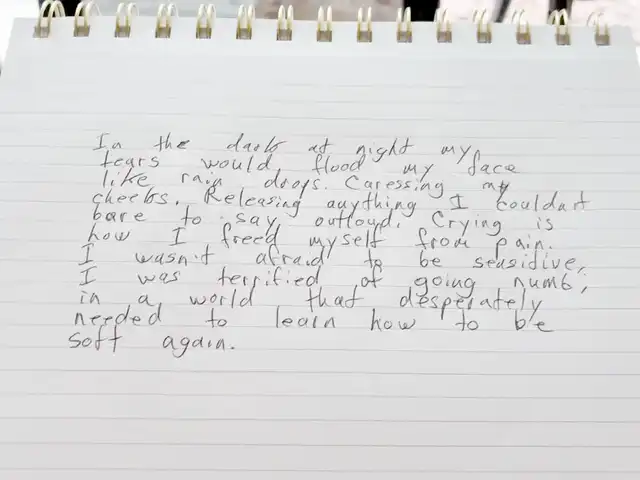 In the dark at night my
tears would flood my face
like rain drops. Caressing my
cheeks. Releasing anything I couldn't
bare to say outloud. Crying is
how I freed myself from pain.
I wasn't afraid to be sensitive,
I was terrified of going numb,
in a world that desperately
needed to learn how to be
soft again.